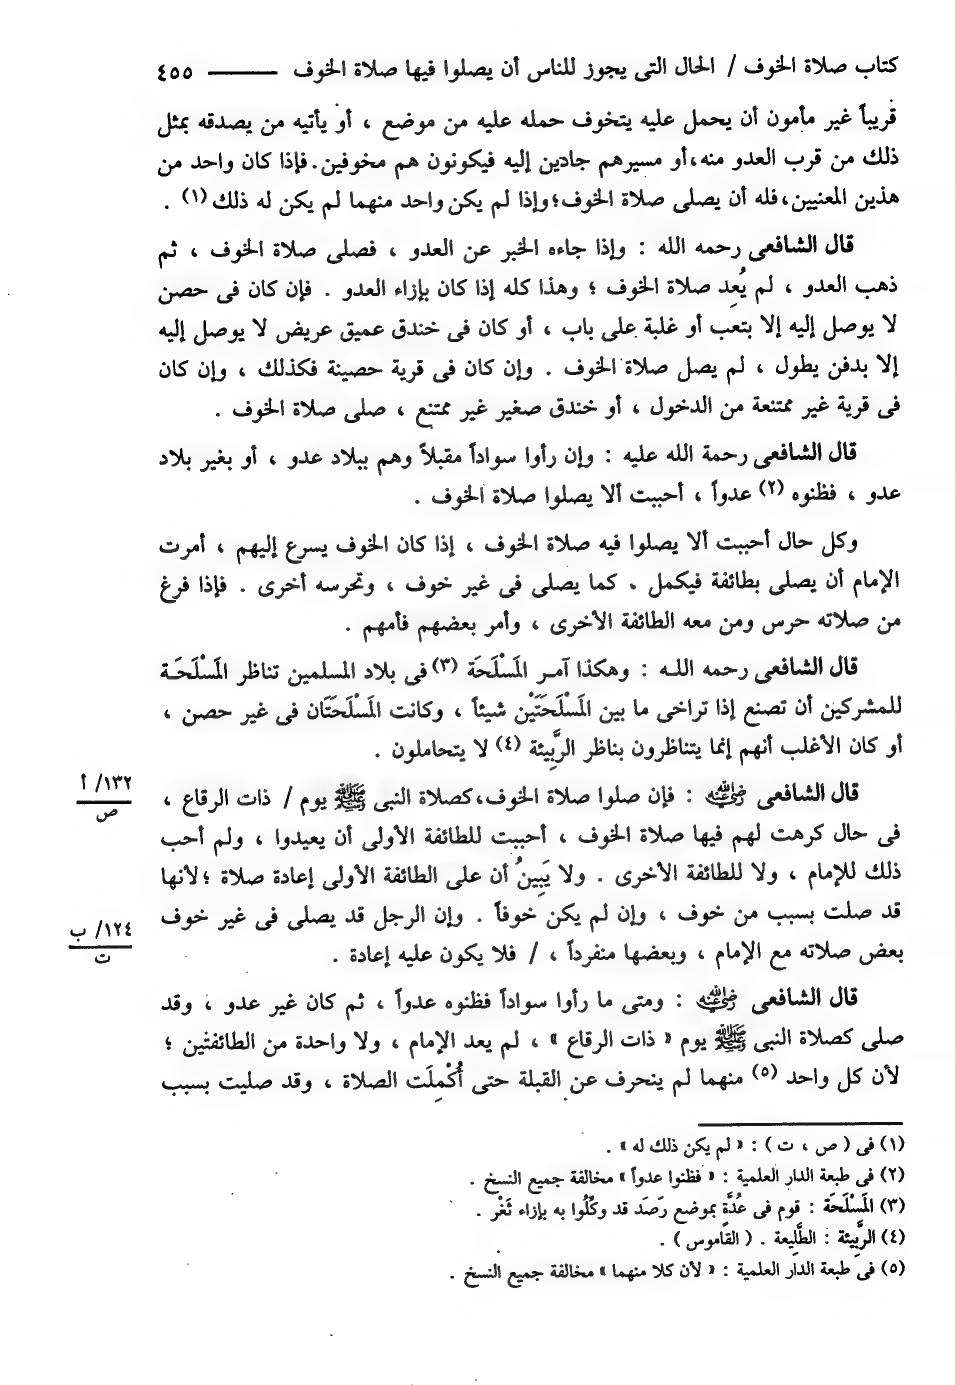 كتاب صلاة الخوف / الحال التى يجوز للناس أن يصلوا فيها صلاة الخوف ——— ٤٥٥
قريباً غير مأمون أن يحمل عليه يتخوف حمله عليه من موضع ، أو يأتيه من يصدقه بمثل
ذلك من قرب العدو منه،أو مسيرهم جادين إليه فيكونون هم مخوفين.فإذا كان واحد من
هذين المعنيين،فله أن يصلى صلاة الخوف؛وإذا لم يكن واحد منهما لم يكن له ذلك (١) .
قال الشافعى رحمه الله : وإذا جاءه الخبر عن العدو ، فصلى صلاة الخوف ، ثم
ذهب العدو ، لم يُعِد صلاة الخوف ؛ وهذا كله إذا كان بإزاء العدو . فإن كان فى حصن
لا يوصل إليه إلا بتعب أو غلبة على باب ، أو كان فى خندق عميق عريض لا يوصل إليه
إلا بدفن يطول ، لم يصل صلاة الخوف . وإن كان فى قرية حصينة فكذلك ، وإن كان
فى قرية غير ممتنعة من الدخول ، أو خندق صغير غير ممتنع ، صلى صلاة الخوف .
قال الشافعى رحمة الله عليه : وإن رأوا سواداً مقبلاً وهم ببلاد عدو ، أو بغير بلاد
عدو ، فظنوه (٢) عدواً ، أحببت ألا يصلوا صلاة الخوف .
وكل حال أحببت ألا يصلوا فيه صلاة الخوف ، إذا كان الخوف يسرع إليهم ، أمرت
الإمام أن يصلى بطائفة فيكمل . كما يصلى فى غير خوف ، وتحرسه أخرى . فإذا فرغ
من صلاته حرس ومن معه الطائفة الأخرى ، وأمر بعضهم فأمهم .
قال الشافعى رحمه الله : وهكذا آمر المَسْلَحَة (٣) فى بلاد المسلمين تناظر المَسْلَحَة
للمشركين أن تصنع إذا تراخى ما بين المَسْلَحَتَيْن شيئاً ، وكانت المَسْلَحتَان فى غير حصن ،
أو كان الأغلب أنهم إنما يتناظرون بناظر الرَّبِيئة (٤) لا يتحاملون .
قال الشافعى رضي الله عنه : فإن صلوا صلاة الخوف،كصلاة النبى ﷺ يوم / ذات الرقاع ،
١٣٢/ أ
ص
فى حال كرهت لهم فيها صلاة الخوف ، أحببت للطائفة الأولى أن يعيدوا ، ولم أحب
ذلك للإمام ، ولا للطائفة الأخرى . ولا يَبِينُ أن على الطائفة الأولى إعادة صلاة ؛لأنها
قد صلت بسبب من خوف ، وإن لم يكن خوفاً . وإن الرجل قد يصلى فى غير خوف
١٢٤/ ب
ت
بعض صلاته مع الإمام ، وبعضها منفرداً ، / فلا يكون عليه إعادة .
قال الشافعى رضي الله عنه : ومتى ما رأوا سواداً فظنوه عدواً ، ثم كان غير عدو ، وقد
صلى كصلاة النبى ﷺ يوم « ذات الرقاع » ، لم يعد الإمام ، ولا واحدة من الطائفتين ؛
لأن كل واحد (٥) منهما لم ينحرف عن القبلة حتى أُكْمِلَت الصلاة ، وقد صليت بسبب
(١) فى ( ص ، ت ) : « لم يكن ذلك له » .
(٢) فى طبعة الدار العلمية : « فظنوا عدواً » مخالفة جميع النسخ .
(٣) المَسْلَحَة : قوم فى عُدَّةٍ بموضع رَصَدَ قد وكِّلُوا به بإزاء ثَغْر .
(٤) الرَّبِيئة : الطَّلِيعة . ( القاموس ) .
(٥) فى طبعة الدار العلمية : « لأن كلا منهما » مخالفة جميع النسخ .